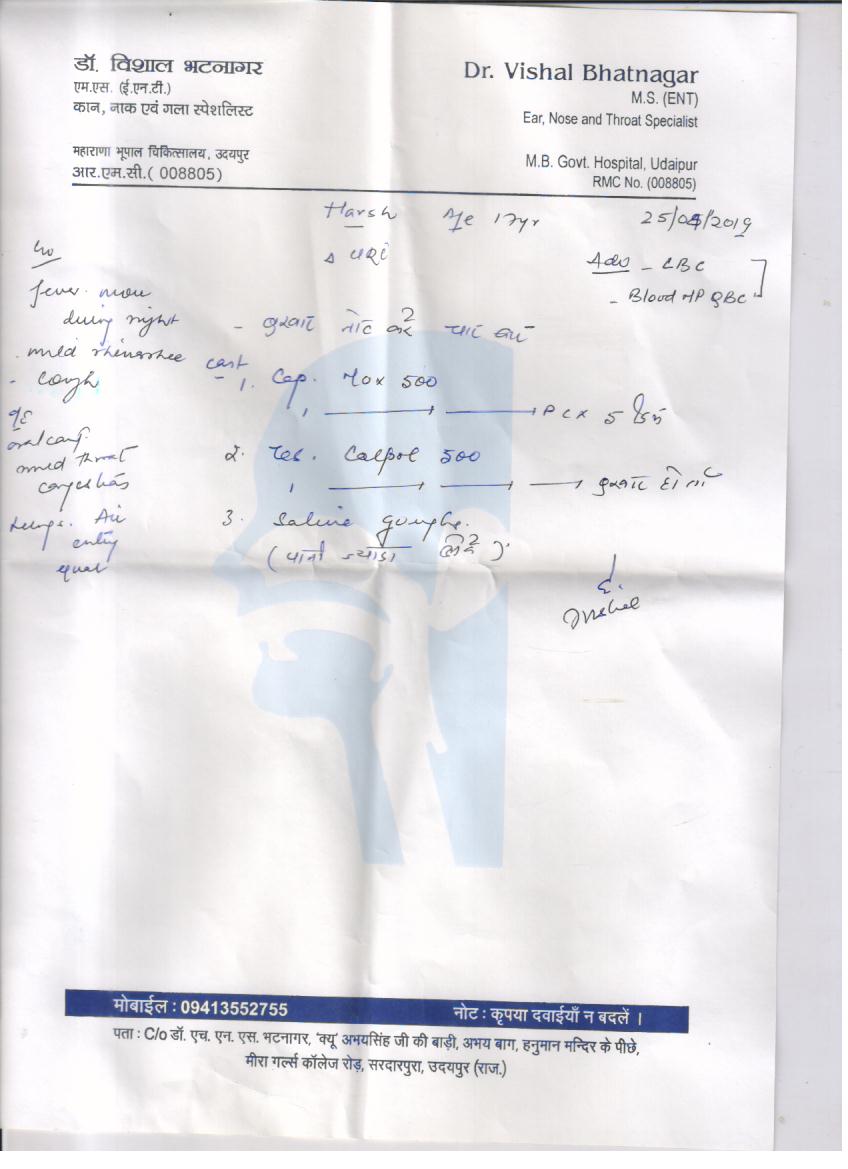 डॉ. विशाल भटनागर
एम.एस. (ई.एन.टी.)
कान, नाक एवं गला स्पेशलिस्ट
महाराणा भूपाल चिकित्सालय, उदयपुर
आर.एम.सी.( 008805)
Dr. Vishal Bhatnagar
M.S. (ENT)
Ear, Nose and Throat Specialist
M.B. Govt. Hospital, Udaipur
RMC No. (008805)
Harsh Age 17yr
Adv - CBC
- Blood MP QBC
fever more
during night
- बुखार नोट करें चार
mild
- cough
oral cavity
mild throat
congestion
Lungs. Air
entry
equal
1. Cap. Mox 500
1 PC x 5
2. Tab. Calpol 500
1 बुखार हो तो
3. Saline
(पानी ज्यादा)
मोबाईल : 09413552755
नोट : कृपया दवाईयाँ न बदलें ।
पता : C/o डॉ. एच. एन. एस. भटनागर, 'क्यू' अभयसिंह जी की बाड़ी, अभय बाग, हनुमान मन्दिर के पीछे,
मीरा गर्ल्स कॉलेज रोड़, सरदारपुरा, उदयपुर (राज.)